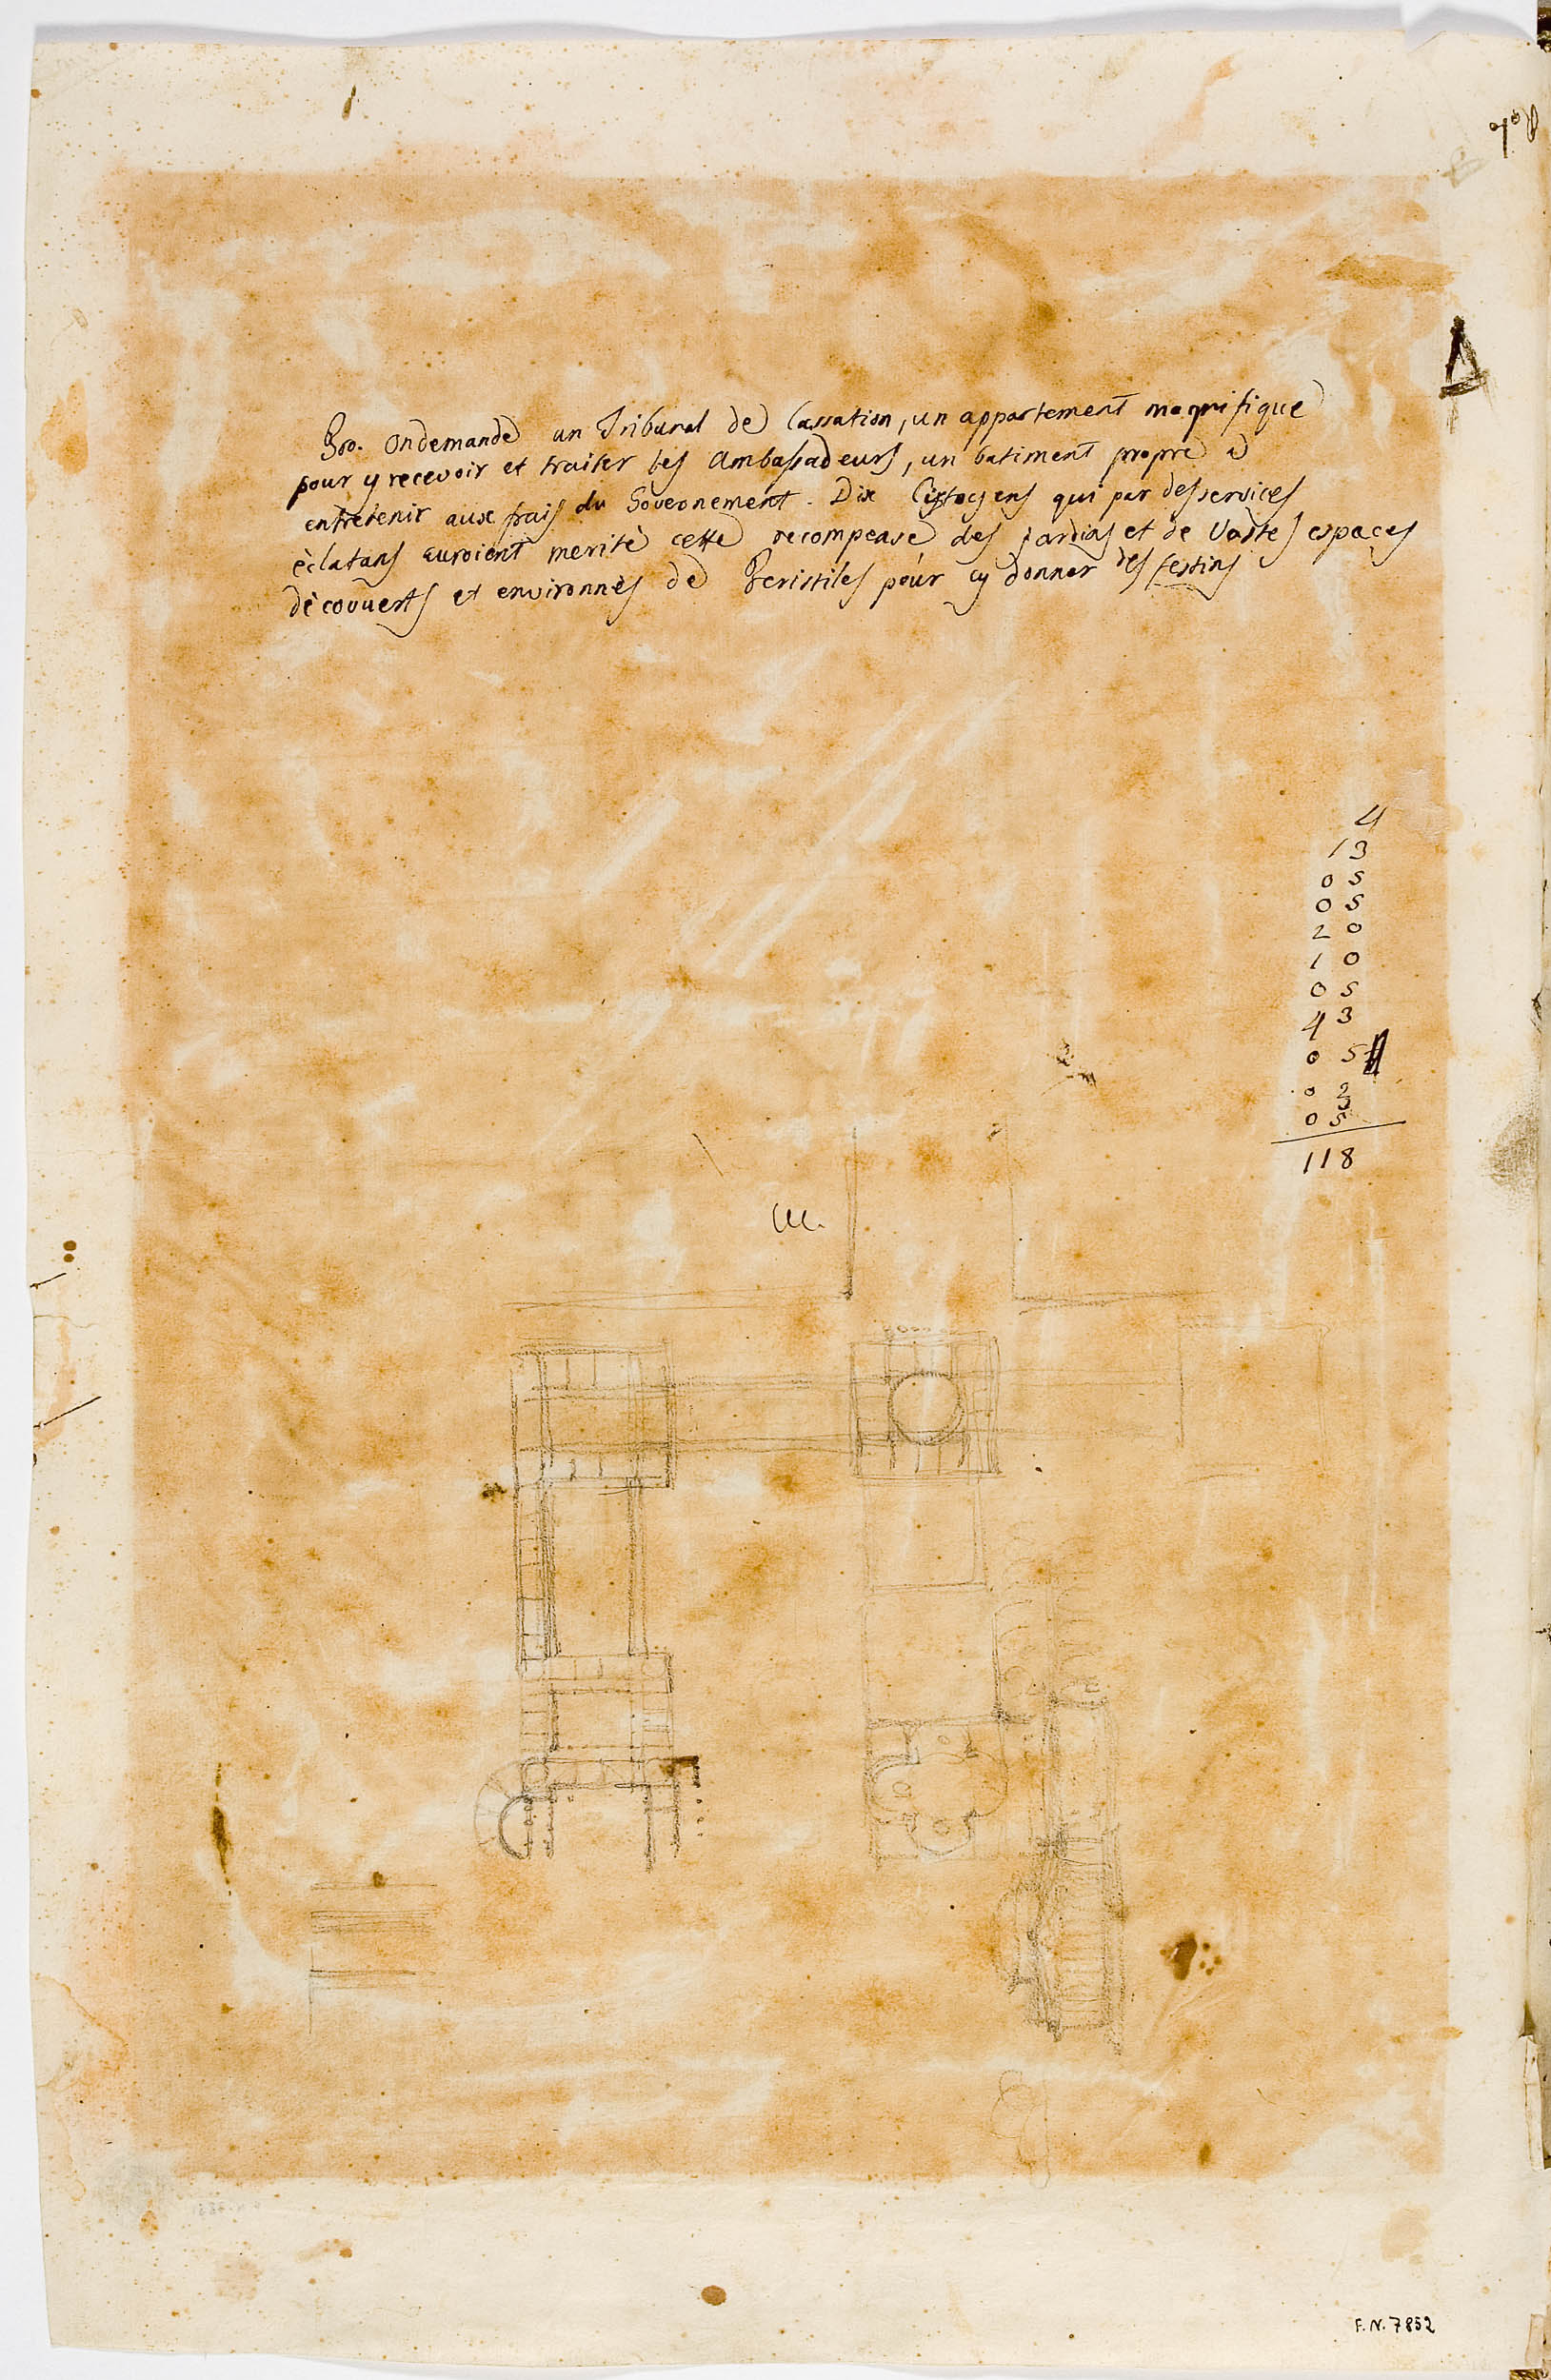 Pro. on demande un Tribunal de Cassation, un appartement magnifique
pour y recevoir et traiter les Ambassadeurs, un batiment propre à
entretenir aux frais du Governement. Dix Cistoyens qui par des services
èclatans auroient meritè cette recompense des jardins et de Vastes espaces
dècouverts et environnès de Peristiles pour y donner des festins
4
13
05
05
20
10
05
43
05
05
118
F.N. 7852